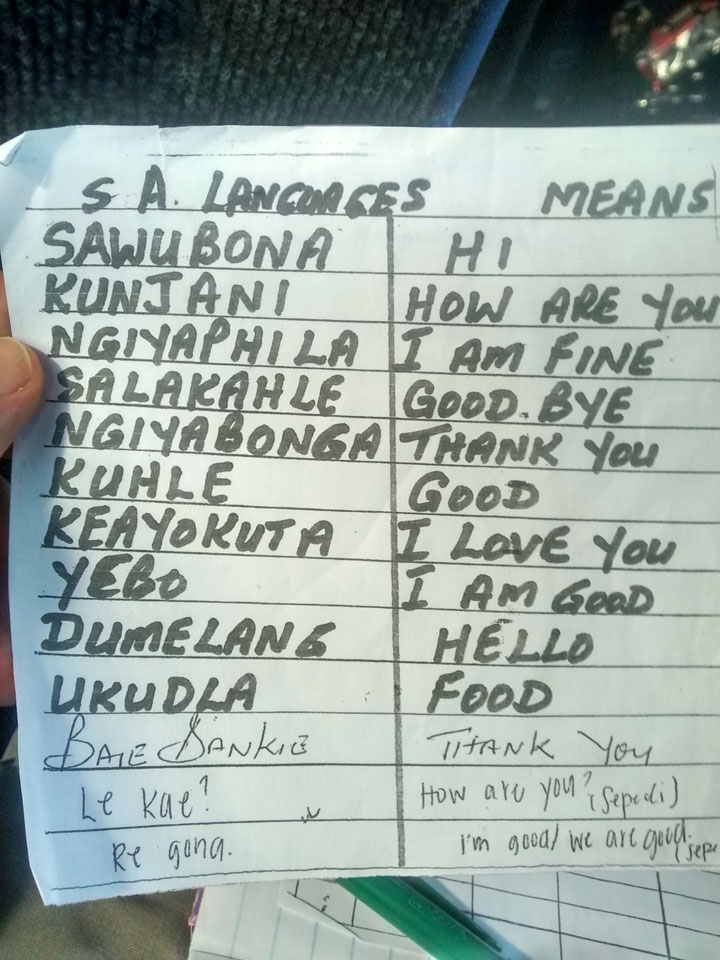 S A. LANGUAGES MEANS
SAWUBONA HI
KUNJANI HOW ARE YOU
NGIYAPHILA I AM FINE
SALAKAHLE GOOD.BYE
NGIYABONGA THANK YOU
KUHLE GOOD
KEAYOKUTA I LOVE YOU
YEBO I AM GOOD
DUMELANG HELLO
UKUDLA FOOD
BAIE DANKIE THANK YOU
Le kae? How are you? (Sepedi)
Re gona. I'm good/ we are good. (Sepe